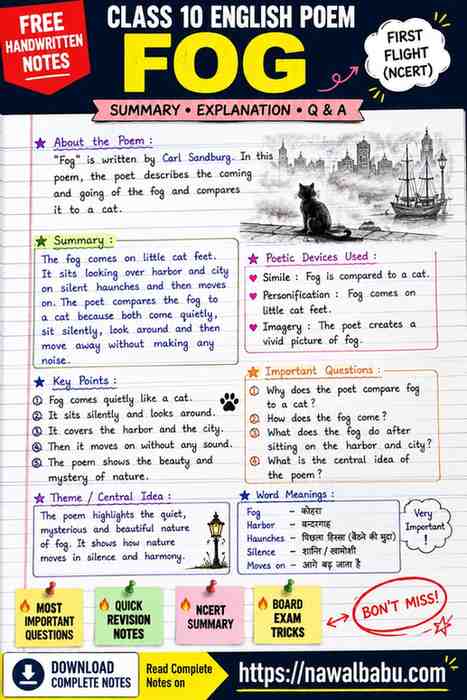 FREE
HANDWRITTEN
NOTES
CLASS 10 ENGLISH POEM
FOG
FIRST
FLIGHT
(NCERT)
SUMMARY • EXPLANATION • Q & A
About the Poem :
"Fog" is written by Carl Sandburg. In this
poem, the poet describes the coming
and going of the fog and compares
it to a cat.
Summary :
The fog comes on little cat feet.
It sits looking over harbor and city
on silent haunches and then moves
on. The poet compares the fog to
a cat because both come quietly,
sit silently, look around and then
move away without making any
noise.
Poetic Devices Used :
Simile : Fog is compared to a cat.
Personification : Fog comes on
little cat feet.
Imagery : The poet creates a
vivid picture of fog.
Key Points :
① Fog comes quietly like a cat.
② It sits silently and looks around.
③ It covers the harbor and the city.
④ Then it moves on without any sound.
⑤ The poem shows the beauty and
mystery of nature.
Important Questions :
① Why does the poet compare fog
to a cat?
② How does the fog come?
③ What does the fog do after
sitting on the harbor and city?
④ What is the central idea of
the poem?
Theme / Central Idea :
The poem highlights the quiet,
mysterious and beautiful nature
of fog. It shows how nature
moves in silence and harmony.
Word Meanings :
Fog – कोहरा
Harbor – बन्दरगाह
Haunches – पिछला हिस्सा (बैठने की मुद्रा)
Silence – शान्ति / खामोशी
Moves on – आगे बढ़ जाता है
Very
Important
!
MOST
IMPORTANT
QUESTIONS
QUICK
REVISION
NOTES
NCERT
SUMMARY
BOARD
EXAM
TRICKS
BON'T MISS!
DOWNLOAD
COMPLETE NOTES
Read Complete
Notes on
https://nawalbabu.com